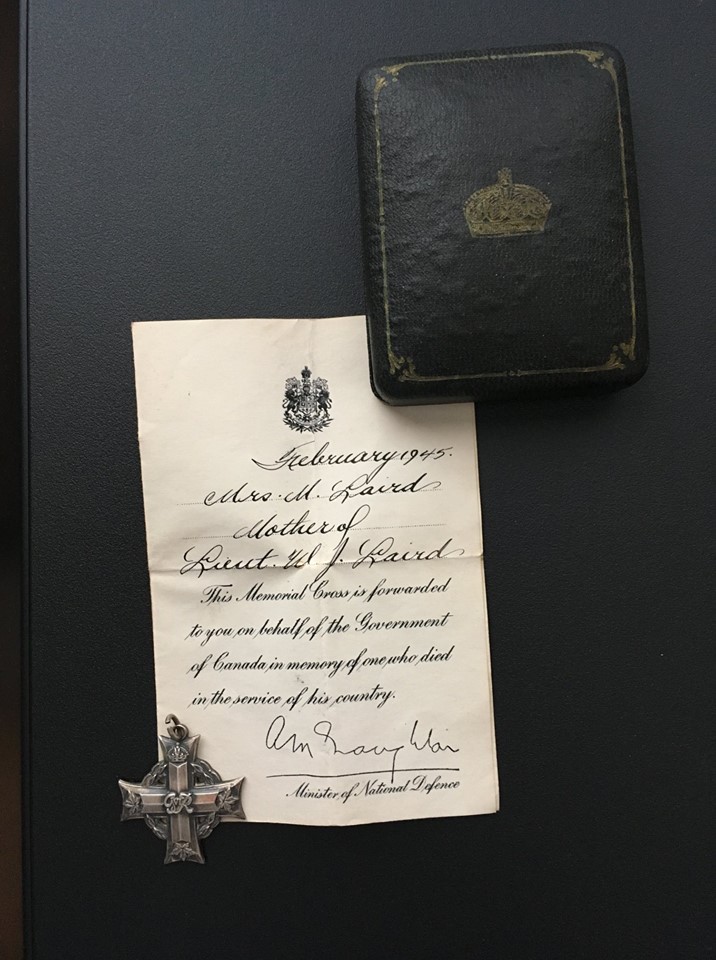 February 1945.
Mrs. M. Laird
Mother of
Lieut. W. J. Laird
This Memorial Cross is forwarded
to you on behalf of the Government
of Canada in memory of one who died
in the service of his country.
A M Naughton
Minister of National Defence